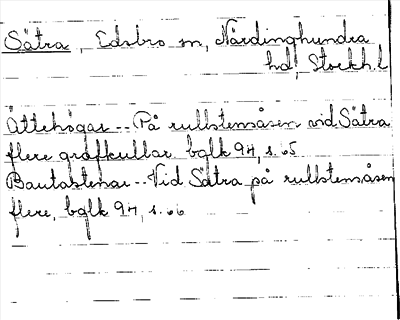 Sätra, Edsbro sn, Närdinghundra
hd, Stockh. l
Ättehögar -- På rullstensåsen vid Sätra
flere grafkullar bglk 94, s. 65
Bautastenar -- Vid Sätra på rullstensåsen
flere, bglk 94, s. 66